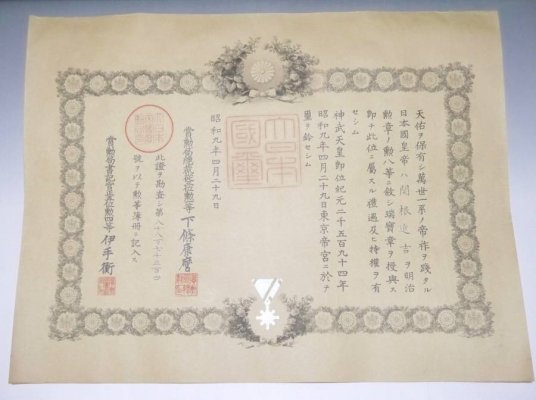 天佑ヲ保有シ萬世一系ノ帝祚ヲ踐タル
日本國皇帝ハ關根 吉ヲ明治
勲章ノ勲八等ニ敍シ瑞寶章ヲ授與ス
即チ此位ニ屬スル禮遇及ヒ特權ヲ有
セシム
神武天皇即位紀元二千五百九十四年
昭和九年四月二十九日東京帝宮ニ於テ
璽ヲ鈐セシム
大日本國璽
昭和九年四月二十九日
賞勲局總裁 勲 等 下條康麿
此證ヲ勘査シ第 號ヲ以テ勲等簿冊ニ記入ス
賞勲局書記官 勲四等 伊手衞